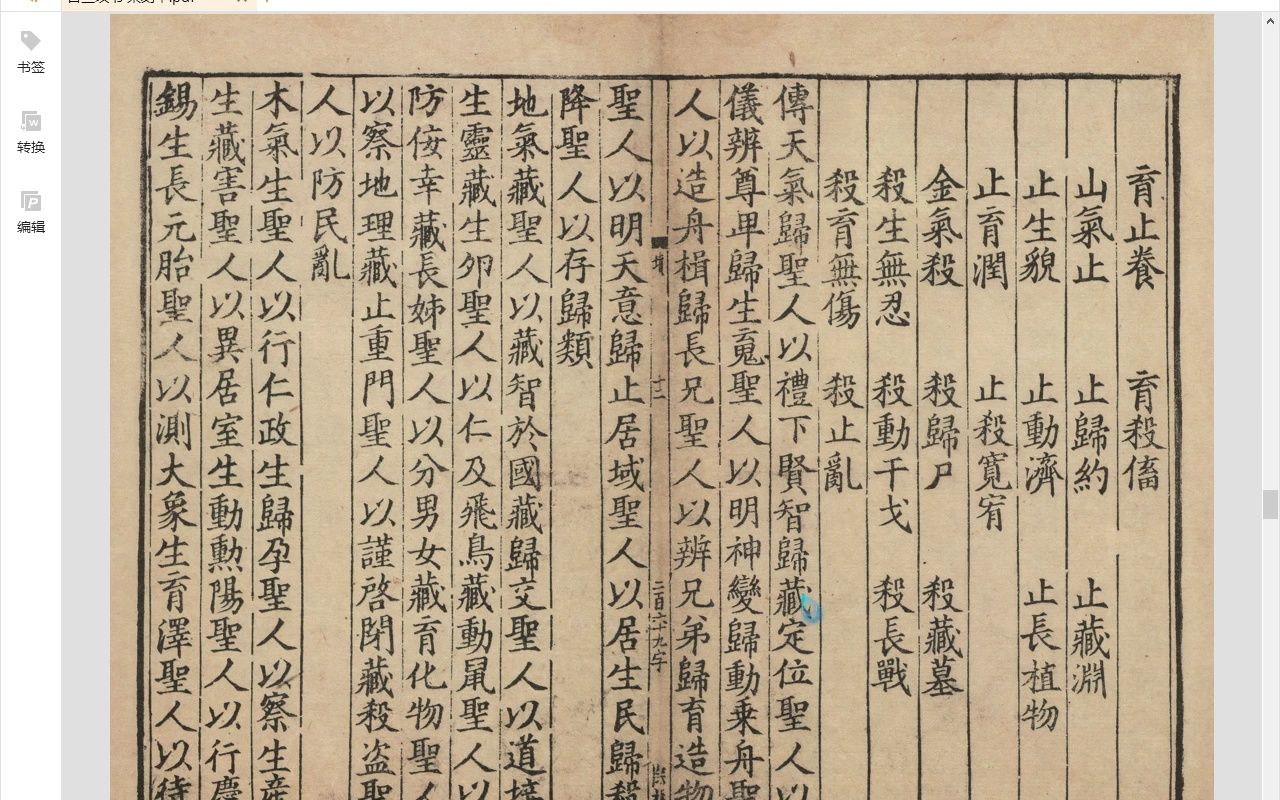 书签
转换
编辑
育止養 育殺畜
山氣止 止歸約 止藏淵
止生貌 止動濟 止長植物
止育潤 止殺寬宥
金氣殺 殺歸尸 殺藏墓
殺生無忍 殺動干戈 殺長戰
殺育無傷 殺止亂
傳天氣歸聖人以禮下賢智歸藏定位聖人以
儀辨尊卑歸生䰟聖人以明神變歸動乗舟聖
人以造舟楫歸長兄聖人以辨兄弟歸育造物
聖人以明天意歸止居域聖人以居生民歸殺
降聖人以存歸類
地氣藏聖人以藏智於國藏歸交聖人以道
生靈藏生夘聖人以仁及飛鳥藏動鼠聖人以
防侫幸藏長姊聖人以分男女藏育化物聖人
以察地理藏止重門聖人以謹啓閉藏殺盜聖
人以防民亂
木氣生聖人以行仁政生歸孕聖人以察生産
生藏害聖人以異居室生動勲陽聖人以行慶
錫生長元胎聖人以測大象生育澤聖人以待
墳
十二
二百六十九字